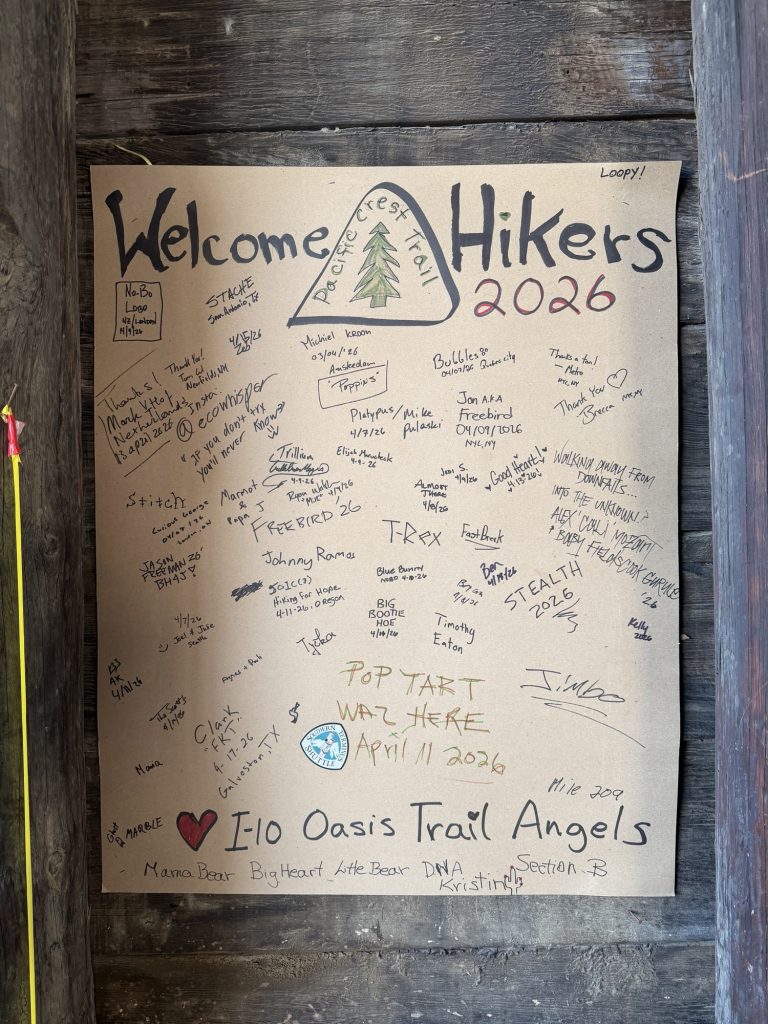 LOOPY!
Welcome
Pacific Crest Trail
Hikers
2026
No-Bo
LOBO
NZ/London
4/9/26
STACHE
San Antonio, TX
4/15/26
Thank You!
Tim W
Thanks!
Mark v
Netherlands
13 april 2026
Insta:
@ecowhisper
"if you don't try
you'll never know?"
Michiel Kroon
03/04/'26
Amsterdam
"Poppins"
Bubbles
04/07/26
Thanks a ton!
- Metro
NYC, NY
Thank You
Becca NYC, NY
Platypus/
4/7/26
Mike
Pulaski
Jon A.K.A
Freebird
04/09/2026
NYC, NY
Trillium
4-9-26
Elijah
4-9-26
Stitch
Curious George
04/07/26
London, UK
Marmot
&
Papa J
Ryan
FREEBIRD '26
Jens S.
4/9/26
ALMOST
THERE
4/10/26
Good Heart!
4/13/26
WALKING AWAY FROM
DOWNFALLS...
INTO THE UNKNOWN?
ALEX
JASON
FREEMAN 26'
BH4J
Johnny Ramos
501C(3)
Hiking for Hope
4-11-26, OREGON
T-Rex
FastBreak
Blue Bunny
NOBO 4-10-26
Ben
4/18/26
STEALTH
2026
'26
4/7/26
Joel & Julie
Seattle
BIG
BOOTIE
HOE
4/10/26
Timothy
Eaton
Kelly
2026
AK
4/11/26
Tycka
POP TART
WAZ HERE
April 11 2026
Jimbo
The Scotts
Clank
"FKT"
4-17-26
Galveston, TX
$
SOUTHERN TERMINUS
SHUTTLE
Mama
Mile 209
Ghost
MARBLE
I-10 Oasis Trail Angels
Mama Bear Big Heart Little Bear DNA Section B
Kristin